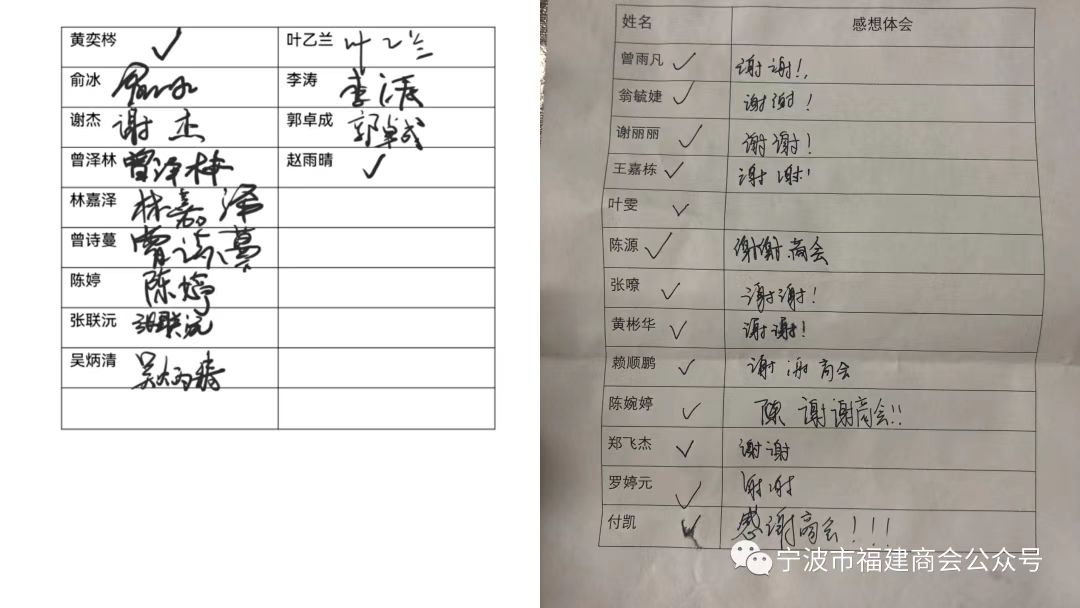 黄奕梣 ✓ 叶乙兰 叶乙兰
俞冰 俞冰 李涛 李涛
谢杰 谢杰 郭卓成 郭卓成
曾泽林 曾泽林 赵雨晴 ✓
林嘉泽 林嘉泽
曾诗蔓 曾诗蔓
陈婷 陈婷
张联沅 张联沅
吴炳清 吴炳清
姓名 感想体会
曾雨凡 ✓ 谢谢!
翁毓婕 ✓ 谢谢!
谢丽丽 ✓ 谢谢!
王嘉栋 ✓ 谢谢!
叶雯 ✓
陈源 ✓ 谢谢商会
张嘹 ✓ 谢谢!
黄彬华 ✓ 谢谢!
赖顺鹏 ✓ 谢谢商会
陈婉婷 ✓ 陳 谢谢商会!!
郑飞杰 ✓ 谢谢
罗婷元 ✓ 谢谢
付凯 ✓ 感谢商会!!!
宁波市福建商会公众号